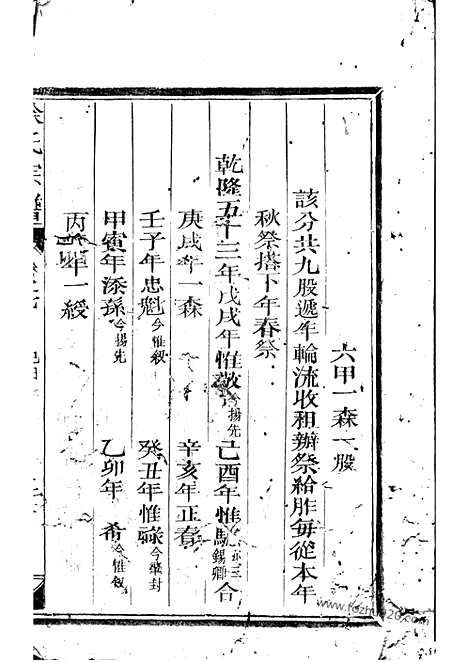 六甲一森一股
該分共九股遞年輪流收租辦祭給胙每從本年
秋祭搭下年春祭
乾隆五十三年戊戌年惟敬今揚先 己酉年惟 錫卿合
庚戌年一森 辛亥年正春
壬子年忠魁今惟叙 癸丑年惟祿今肇封
甲寅年添孫今揚先 乙卯年 希今惟叙
丙 年一綬
余氏宗譜
www.fozhu920.com